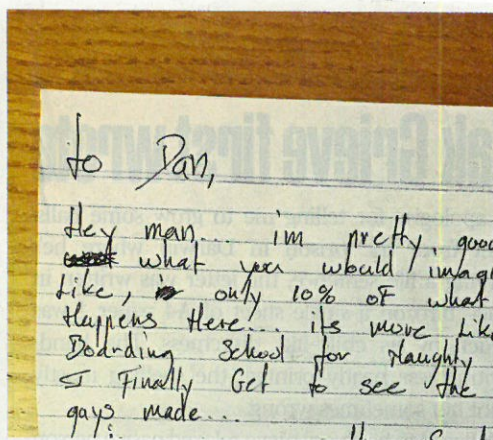 to Dan,
Hey man, im pretty good
what you would imag
Like, only 10% of what
Happens Here... its more Like
Boarding School for Naughty
I Finally Get to see the
gays made...